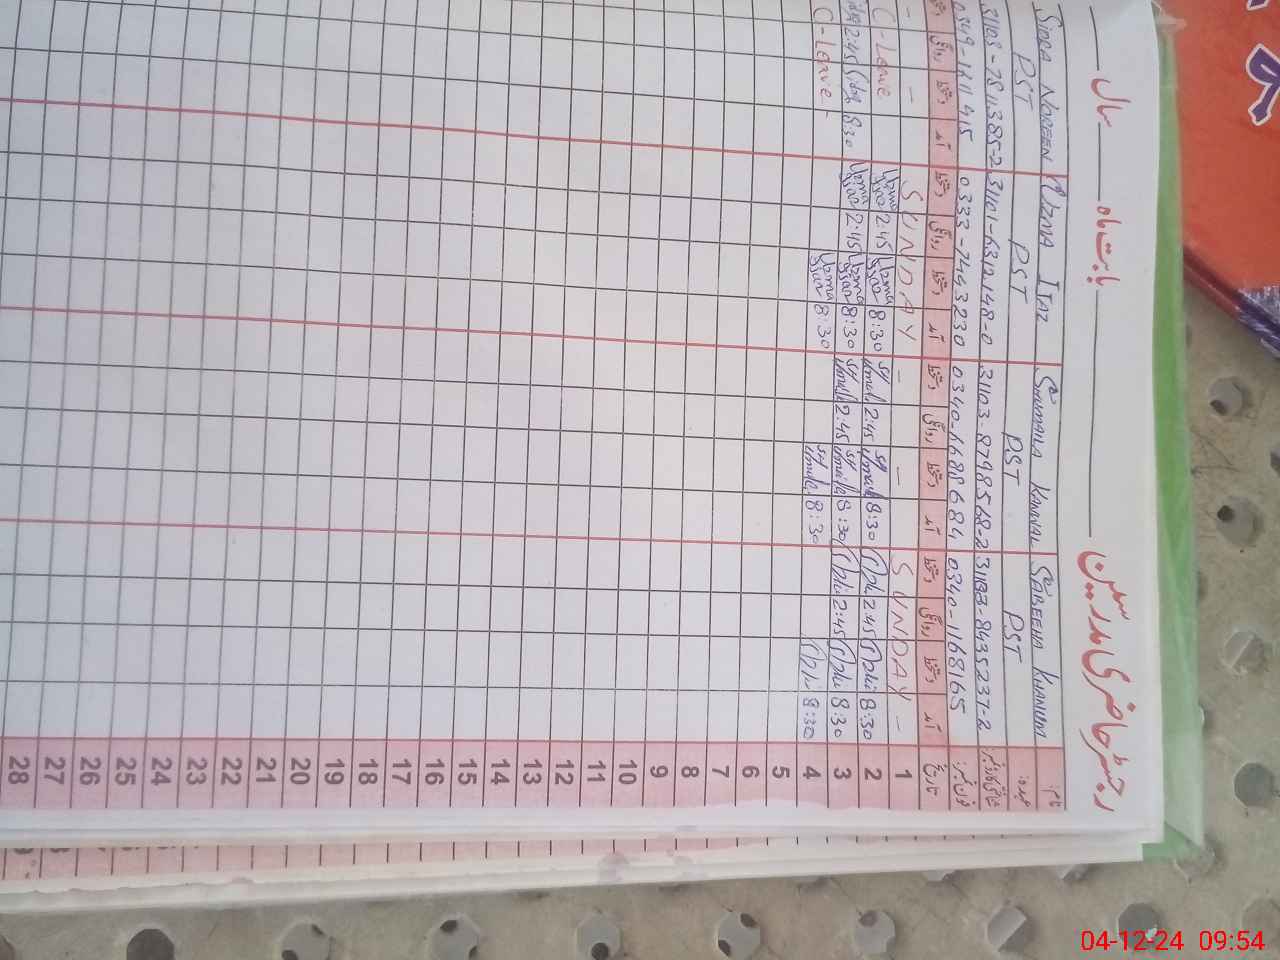 رجسٹر حاضری مدرسین بابت ماہ سال
نام: SABEEHA KHANUM SHUMAILA KANWAL UZMA IJAZ SIDRA NOREEN
عہدہ: PST PST PST PST
شناختی کارڈ نمبر: 31103-8798568-2 31101-6312148-0 31103-7811385-2
فون نمبر: 0340-1168165 0340-6688684 0333-7443230 0349-1611415
تاریخ آمد دستخط روانگی دستخط آمد دستخط روانگی دستخط آمد دستخط روانگی دستخط آمد دستخط روانگی دستخط
1 - SUNDAY - - SUNDAY - -
2 8:30 2:45 8:30 2:45 8:30 Uzma Ijaz 2:45 Uzma Ijaz C-Leave
3 8:30 2:45 8:30 2:45 8:30 Uzma Ijaz 2:45 Uzma Ijaz 8:30 Sidra 2:45 Sidra
4 8:30 8:30 8:30 Uzma Ijaz C-Leave
5
6
7
8
9
10
11
12
13
14
15
16
17
18
19
20
21
22
23
24
25
26
27
28
04-12-24 09:54